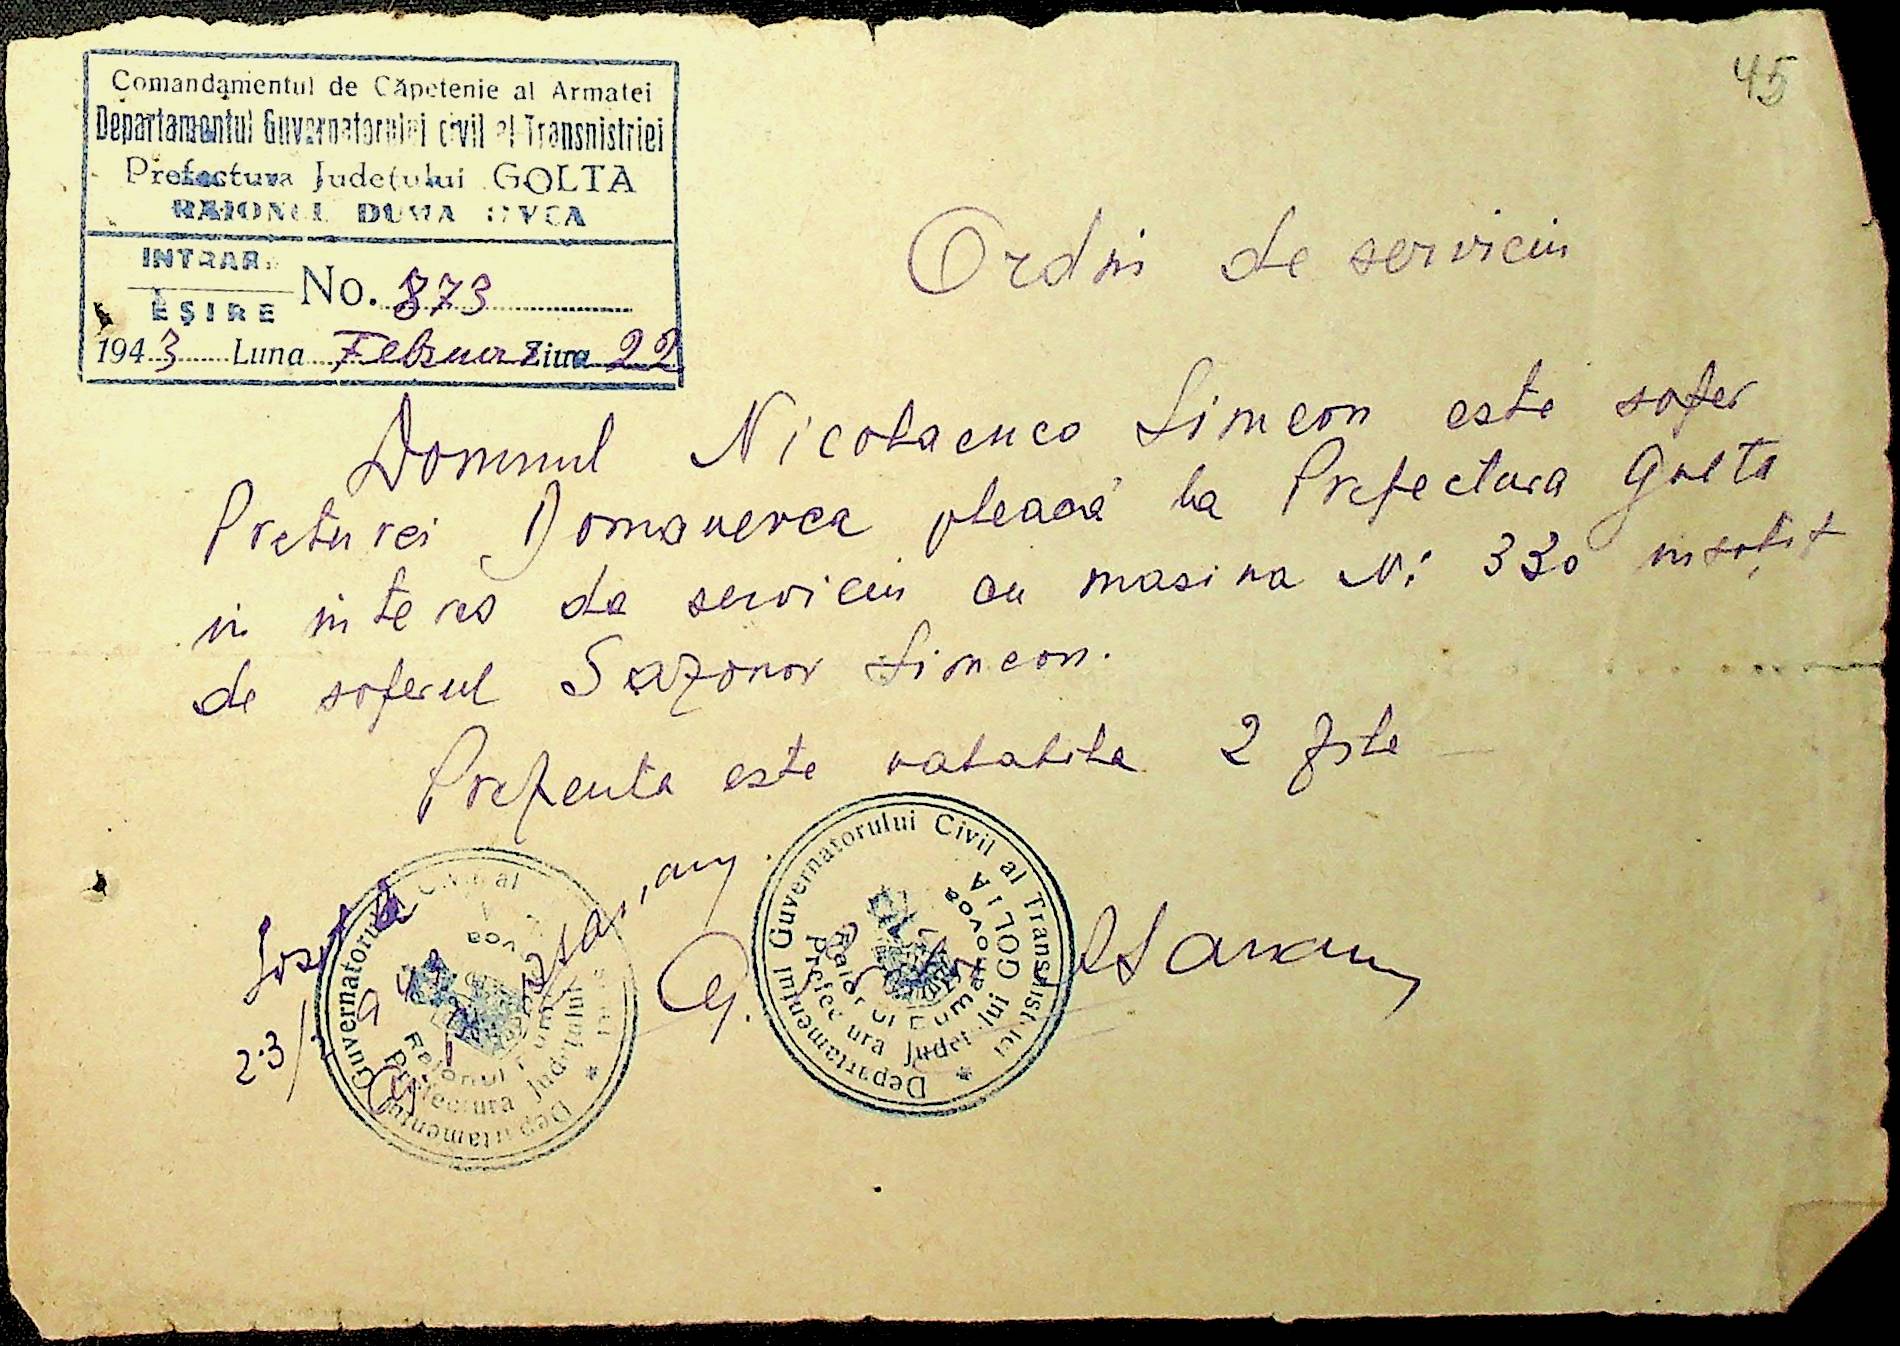 45
Comandamentul de Căpetenie al Armatei
Departamentul Guvernatorului civil al Transnistriei
Prefectura Județului GOLTA
RAIONUL DUMANOVCA
INTRARE
EȘIRE
No. 873
1943 Luna Februar Ziua 22
Ordin de serviciu
Domnul Nicolaenco Simeon este sofer
Preturei Domanevca pleacă la Prefectura Golta
in interes de serviciu cu masina Nr 330 insoțit
de soferul Sazonov Simeon.
Prezenta este valabila 2 zile
Departamentul Guvernatorului Civil al Transnistriei
Prefectura Județului GOLTA
Raionul Dumanovca
Guvernatorului Civil al
Departamentul
Prefectura Județului
Raionul
23/